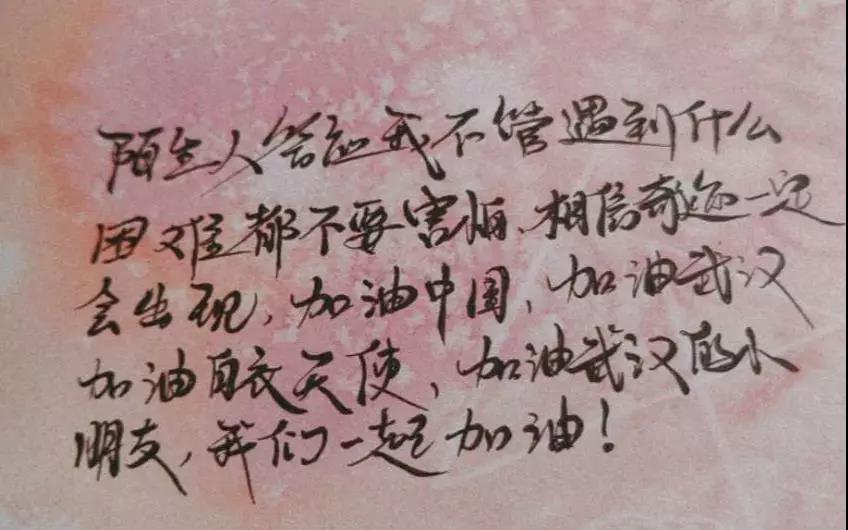 陌生人答应我不管遇到什么
困难都不要害怕、相信奇迹一定
会出现,加油中国,加油武汉
加油白衣天使,加油武汉的小
朋友,我们一起加油!